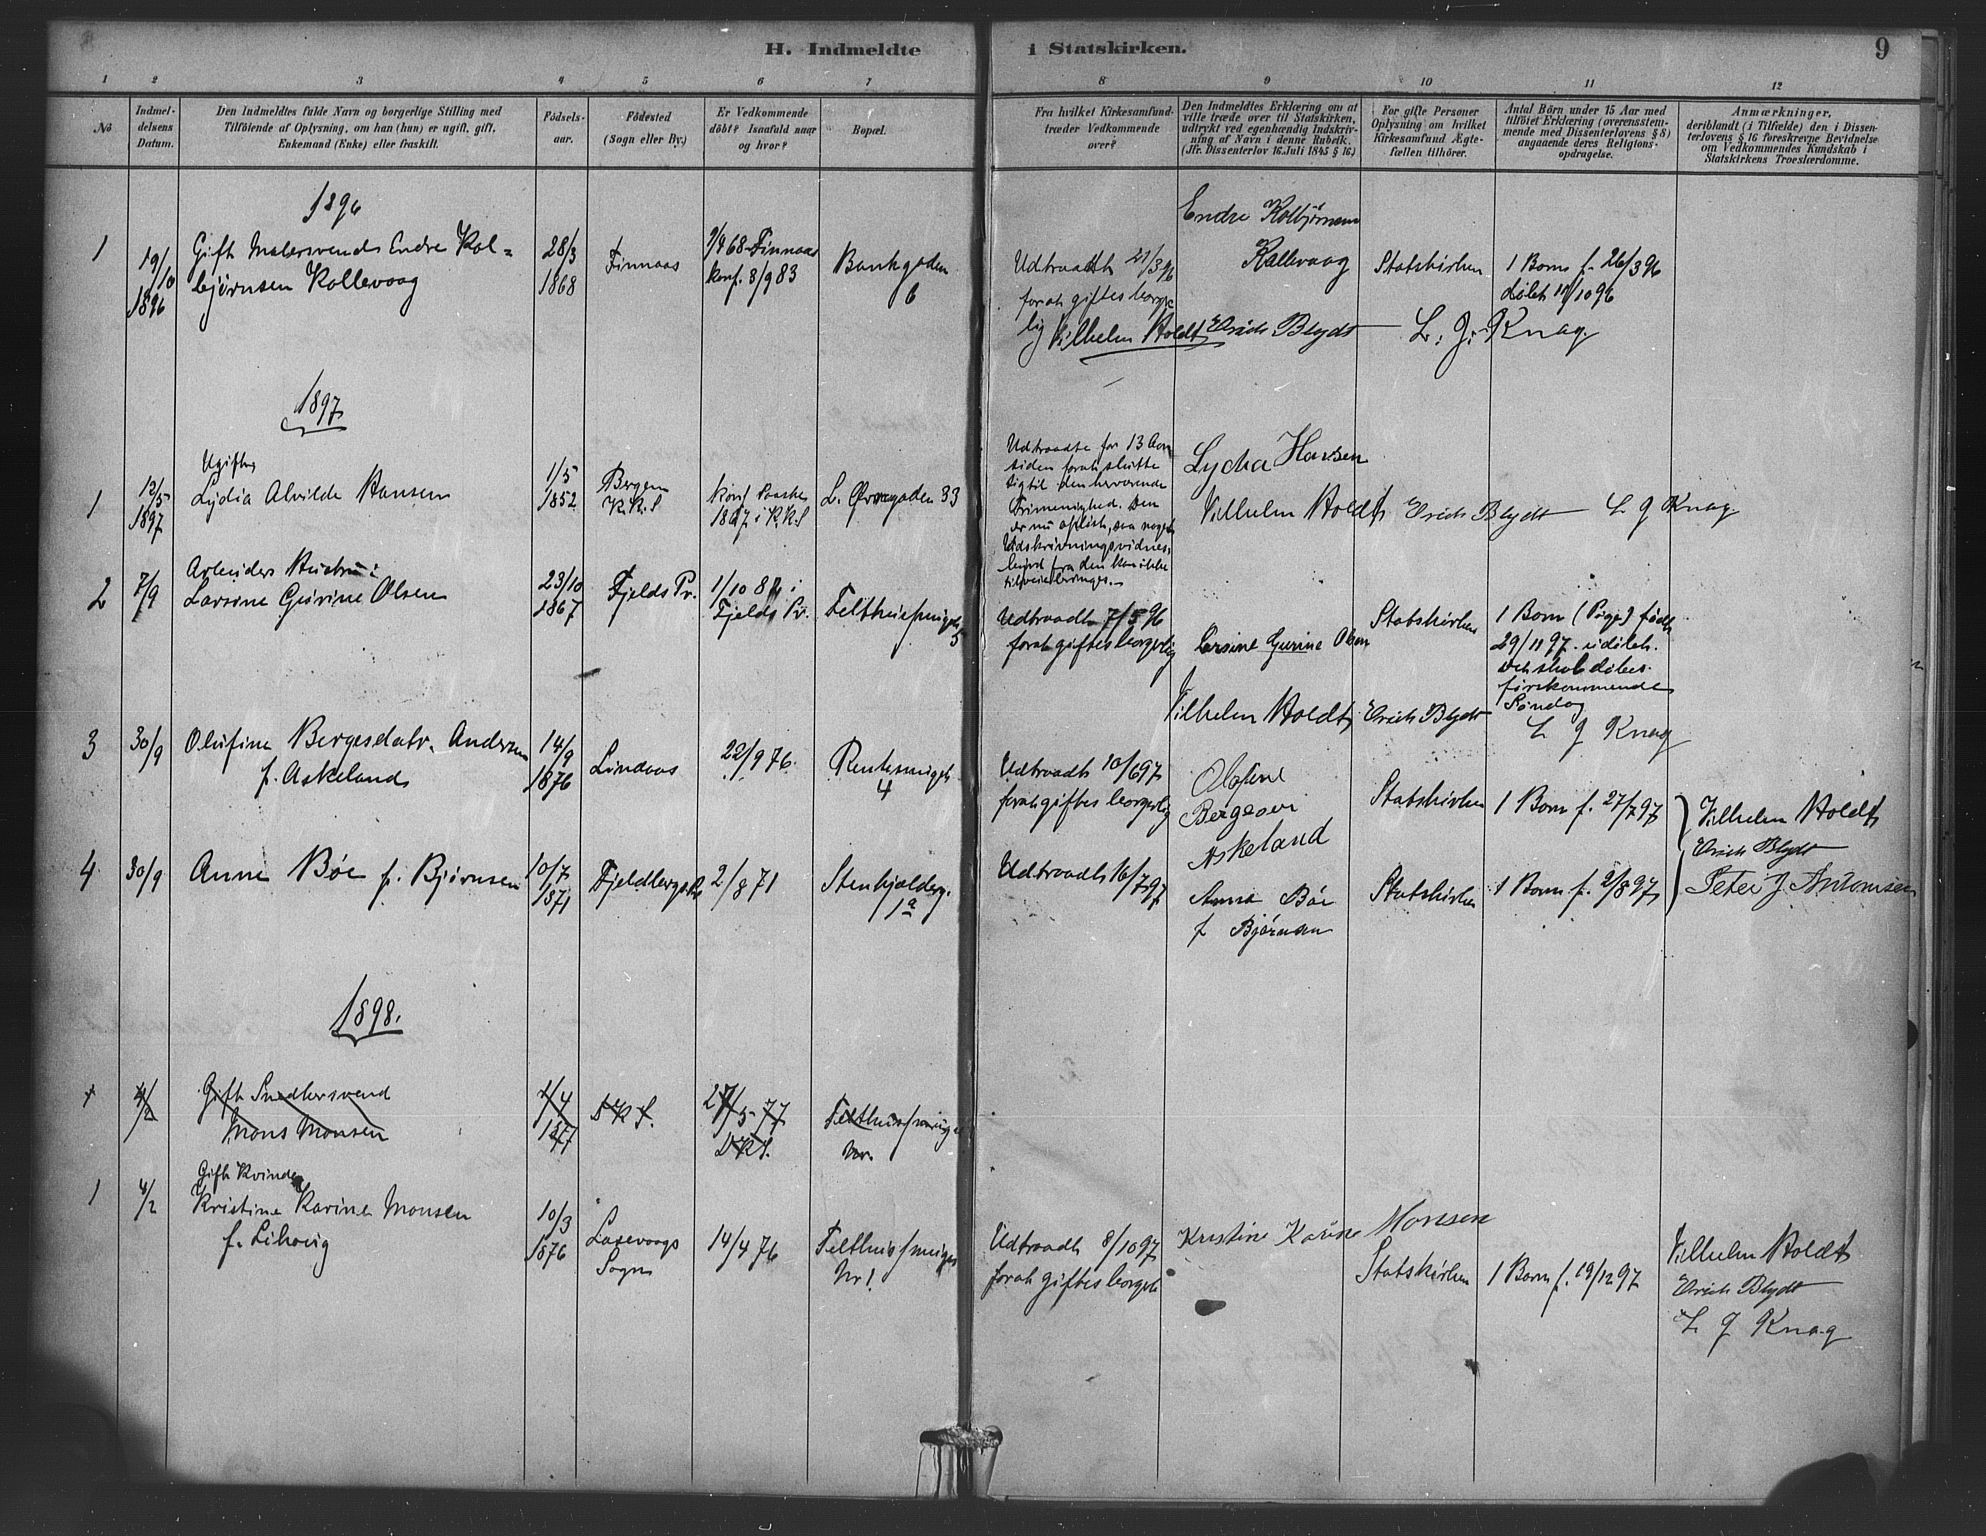 H. Indmeldte i Statskirken.
9
1 2 3 4 5 6 7 8 9 10 11 12
No
Indmel-
delsens
Datum.
Den Indmeldtes fulde Navn og borgerlige Stilling med
Tilføiende af Oplysning, om han (hun) er ugift, gift,
Enkemand (Enke) eller fraskilt.
Fødsels-
aar.
Fødested
(Sogn eller By.)
Er Vedkommende
døbt? Isaafald naar
og hvor?
Bopæl.
Fra hvilket Kirkesamfund
træder Vedkommende
over?
Den Indmeldtes Erklæring om at
ville træde over til Statskirken,
udtrykt ved egenhændig Indskriv-
ning af Navn i denne Rubrik.
(Jfr. Dissenterlov 16. Juli 1845 § 16.)
For gifte Personer
Oplysning om hvilket
Kirkesamfund Ægte-
fællen tilhører.
Antal Børn under 15 Aar med
tilføiet Erklæring (overensstem-
mende med Dissenterlovens § 8)
angaaende deres Religions-
opdragelse.
Anmærkninger,
deriblandt (i Tilfælde) den i Dissen-
terlovens § 16 foreskrevne Bevidnelse
om Vedkommendes Kundskab i
Statskirkens Troeslærdomme.
1896
1
19/10
1896
Gift Malersvend Endre Kol-
bjørnsen Kallevaag
28/3
1868
Finnaas
9/4 68 Finnaas
konf. 8/9 83
Bankgaden
6
Udtraadt 21/3 96
for at giftes borger
lig
Endre Kolbjørnsen
Kallevaag
Statskirken
1 Barn f. 26/3 96
døbt 11/10 96
Vilhelm Holdt Erich Blydt L. J. Knag
1897
1
13/5
1897
Ugift
Lydia Alvilde Hansen
1/5
1852
Bergen
K.K.S
Konf. Paaske
1867 i K.K.S
L. Øvregaden 33
Udtraadte for 13 Aar
siden for at slutte
sig til den herværende
Frimenighed. Den
er nu opløst, saa noget
Udskrivningsvidnes-
byrd fra den kan ikke
tilveiebringes.
Lydia Hansen
Vilhelm Holdt Erich Blydt L J Knag
2
7/9
Arbeiders Hustru:
Larsine Gurine Olsen
23/10
1867
Fjelds Pr.
1/10 8 i
Fjelds Pr.
Felthussmuget
5
Udtraadt 7/5 96
for at giftes borgerlig
Larsine Gurine Olsen
Statskirken
1 Barn (Pige) født
29/11 97 udøbt.
Det skal døbes
førstkommende
Søndag
Vilhelm Holdt Erich Blydt L J Knag
3
30/9
Olufine Bergesdatr. Andersen
f. Askeland
14/9
1876
Lindaas
22/9 76.
Rentesmuget
4
Udtraadt 10/6 97
for at giftes borgerlig
Olufine
Bergesen
Askeland
Statskirken
1 Barn f. 27/7 97
Vilhelm Holdt
Erich Blydt
Peter J. Antonisen
4
30/9
Anne Bøe f. Bjørnsen
10/7
1871
Fjeldbergs Pr
2/8 71
Stenkjelderg.
1a
Udtraadt 16/7 97
Anna Bøe
f Bjørnsen
Statskirken
1 Barn f. 2/8 97
1898.
1
4/2
Gift Snedkersvend
Mons Monsen
1/4
1877
D K S.
27/5 77
D.K.S.
Felthussmuget
No.
1
4/2
Gift Kvinde
Kristine Karine Monsen
f. Lihoug
10/3
1876
Laxevaags
Sogn
14/4 76
Felthussmuget
Nr 1
Udtraadt 8/10 97
for at giftes borgerl
Kristine Karine Monsen
Statskirken
1 Barn f. 19/12 97
Vilhelm Holdt
Erich Blydt
L J Knag